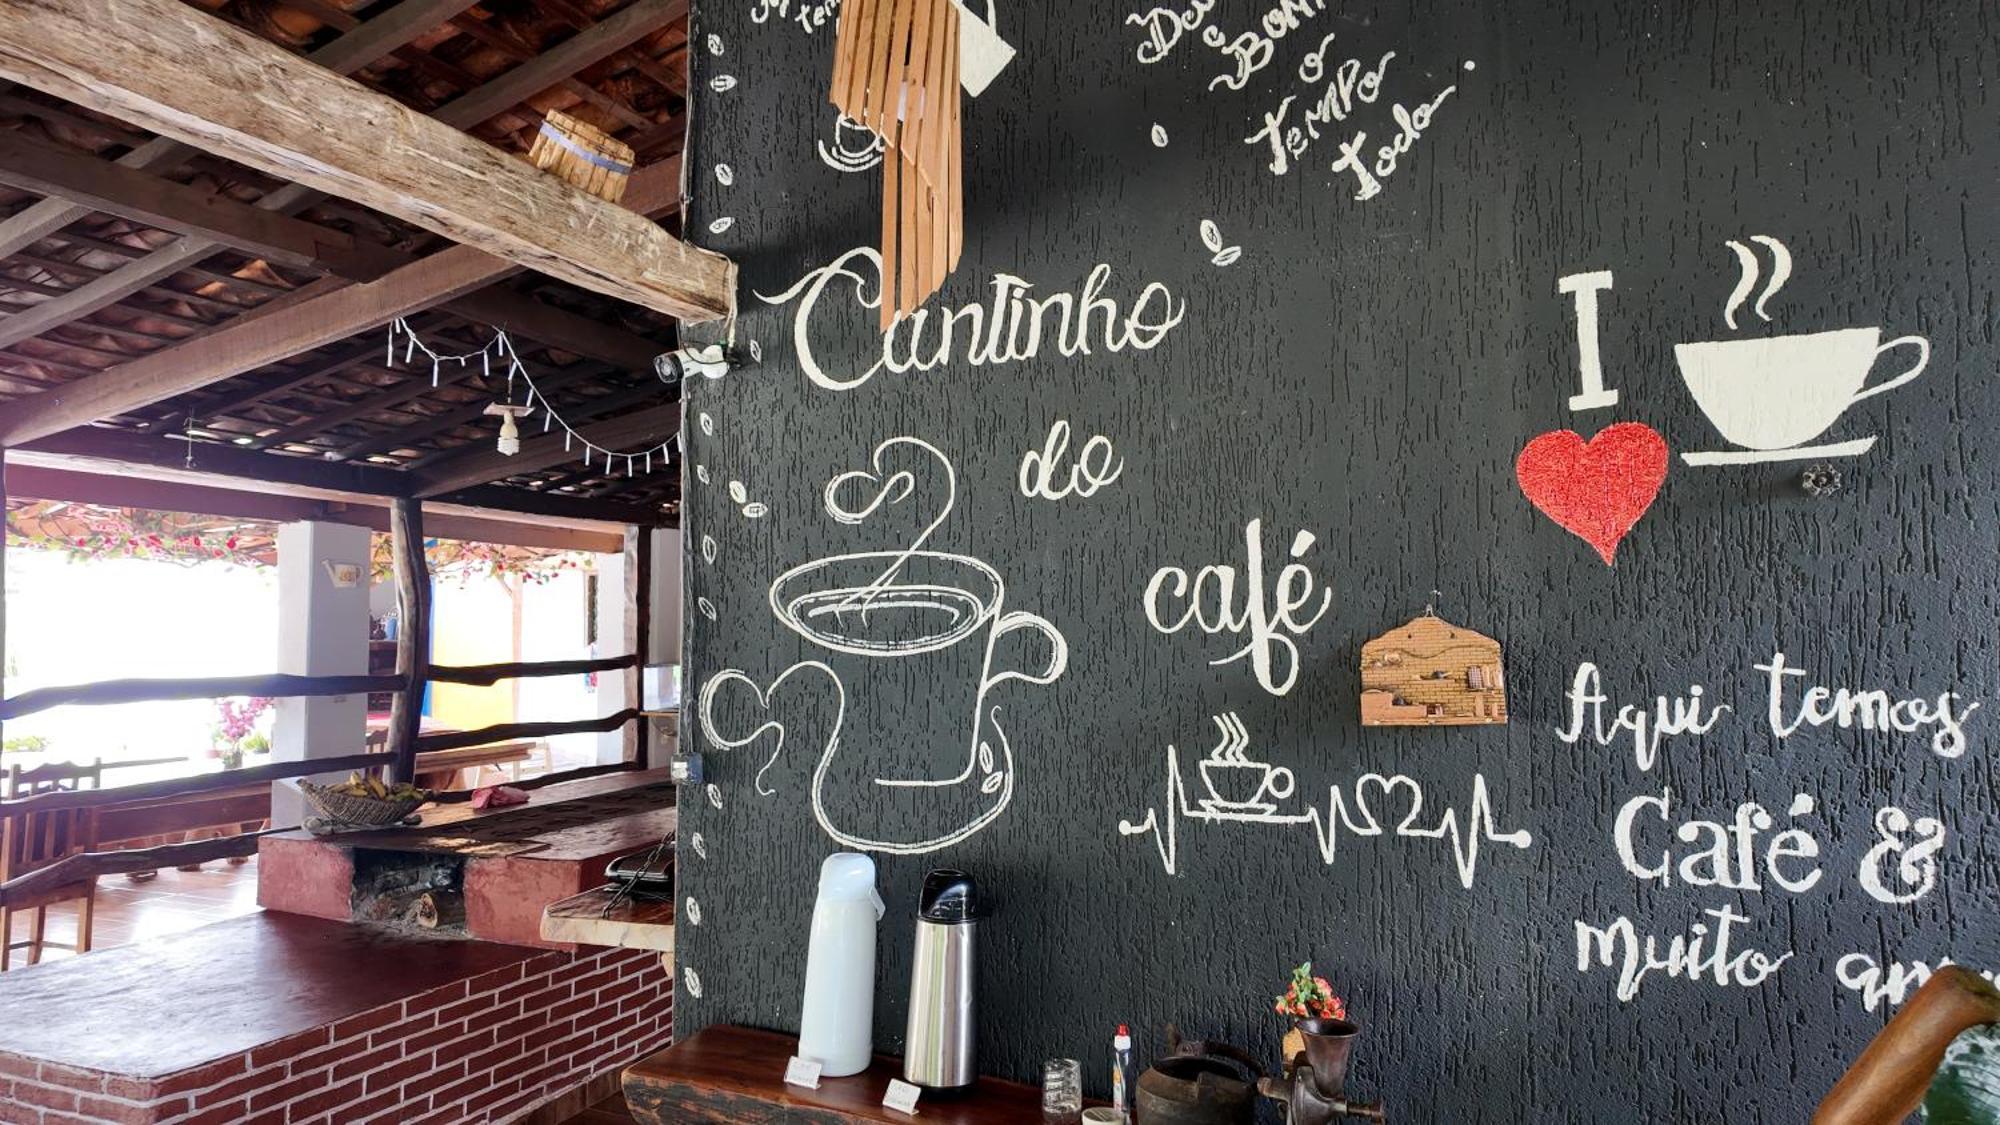 tem
Bom
o
Tempo
todo.
Cantinho
do
café
I
Aqui temos
Café &
muito